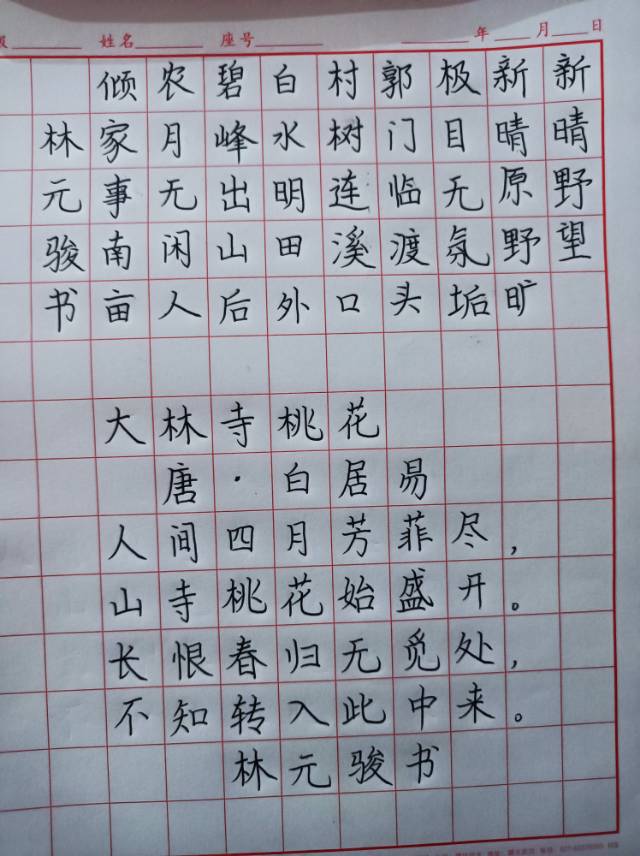 级 姓名 座号 年 月 日
新晴野望
新晴原野旷
极目无氛垢
郭门临渡头
村树连溪口
白水明田外
碧峰出山后
农月无闲人
倾家事南亩
林元骏书
大林寺桃花
唐·白居易
人间四月芳菲尽，
山寺桃花始盛开。
长恨春归无觅处，
不知转入此中来。
林元骏书